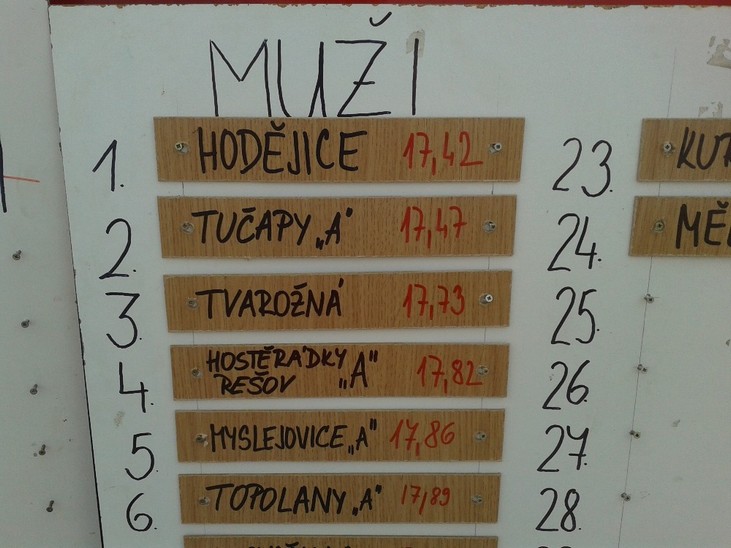 MUŽI
1. HODĚJICE 17,42
2. TUČAPY „A" 17,47
3. TVAROŽNÁ 17,73
4. HOSTĚRÁDKY
REŠOV „A" 17,82
5. MYSLEJOVICE „A" 17,86
6. TOPOLANY „A" 17,89
23.
24.
25.
26.
27.
28.